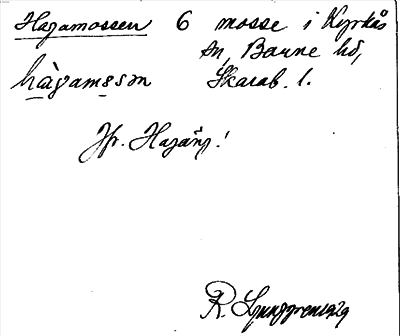 Hagamossen 6 mosse i Kyrkås
sn, Barne hd,
hàgamɵsɘn Skarab. l.
Jfr. Hagäng!
R. Ljunggren 1929